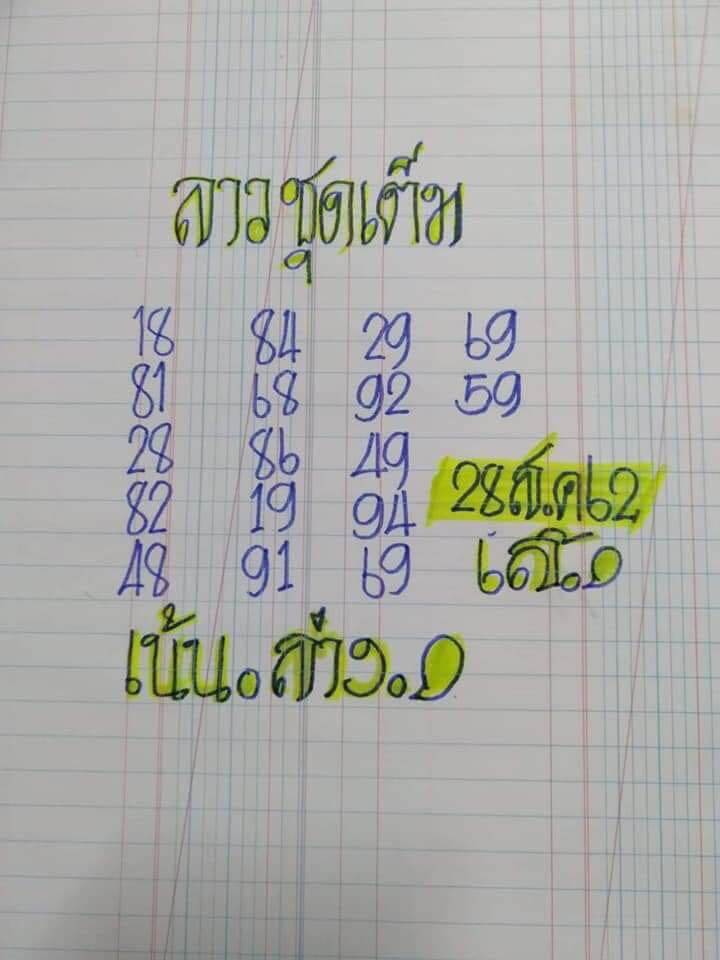 ลาวชุดเต็ม
18 84 29 69
81 68 92 59
28 86 49
82 19 94
48 91 69
28ส.ค62
เน้น.ล่าง.